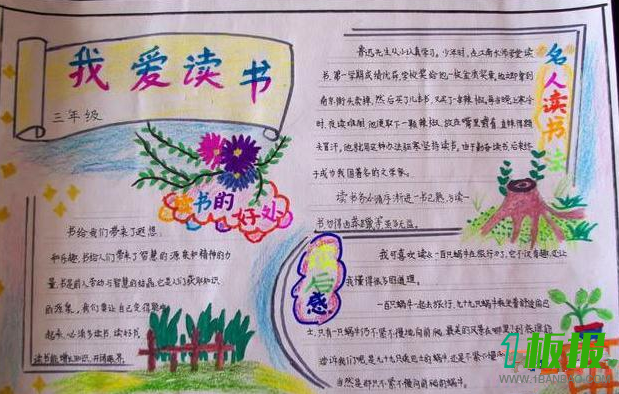 我爱读书
三年级
读书的
好处
书给我们带来了遐想
和乐趣,书给人们带来了智慧的源泉和精神的力
量。书是前人劳动与智慧的结晶,它是人们获取知识
的源泉。我们要让自己变得聪
起来,必须多读书,读好书。
读书能增长知识,开阔眼界。
名人读书法
鲁迅先生从小认真学习。少年时,在江南水师学堂读
书,第一学期成绩优异,学校奖给他一枚金质奖章。他立即拿到
南京街头卖掉,然后买了几本书,又买了一串辣椒。每当晚上寒冷
时,夜读难耐,他便取下一颗辣椒,放在嘴里嚼着,直辣得额
头冒汗。他就用这种办法驱寒坚持读书。由于勤奋读书,后来终
于成为我国著名的文学家。
读书务必循序渐进;一书已熟,方读一
书
读后感
我可喜欢读《一百只蜗牛去旅行》了,它不仅有趣,还让
我懂得很多的道理。
一百只蜗牛一起去旅行,九十九只蜗牛都坐着舒适的巴
士,只有一只蜗牛仍不紧不慢地向前爬。最美的风景在哪里?
告诉我们吧,是九十九只坐巴士的蜗牛,还是不紧不慢
当然是那只不紧不慢向前爬的蜗牛。
1板报
WWW.1BANBAO.COM